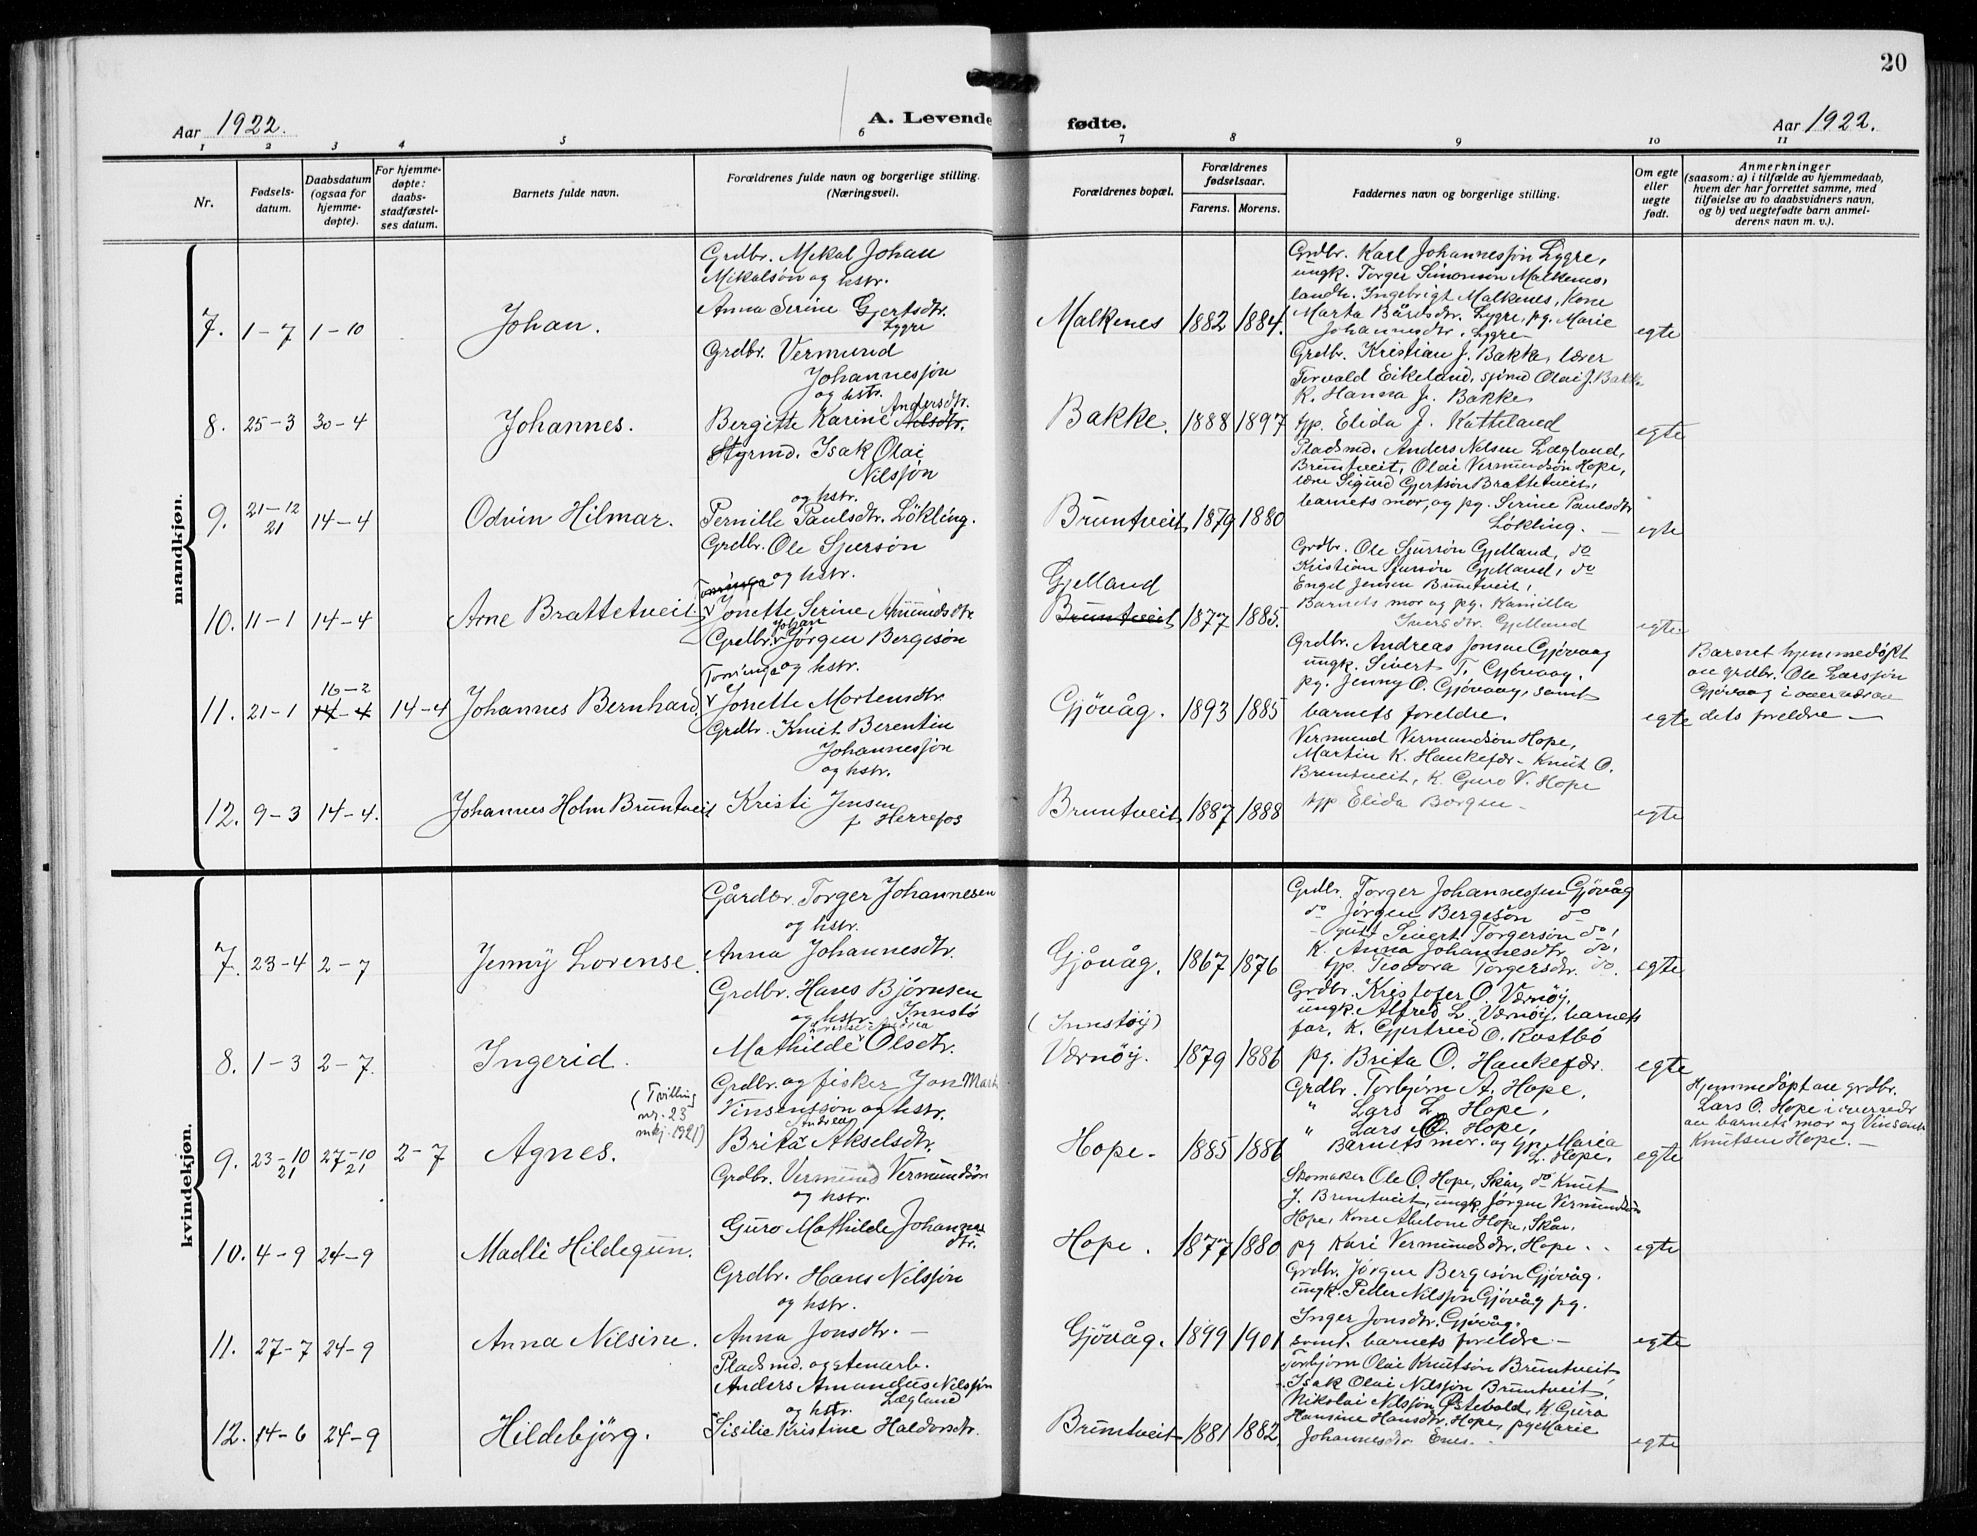 20
Aar 1922.
A. Levende fødte.
Aar 1922.
1 2 3 4 5 6 7 8 9 10 11
Nr.
Fødsels-
datum.
Daabsdatum
(ogsaa for
hjemme-
døpte).
For hjemme-
døpte:
daabs-
stadfæstel-
ses datum.
Barnets fulde navn.
Forældrenes fulde navn og borgerlige stilling.
(Næringsvei).
Forældrenes bopæl.
Forældrenes
fødselsaar.
Farens. Morens.
Faddernes navn og borgerlige stilling.
Om egte
eller
uegte
født.
Anmerkninger
(saasom: a) i tilfælde av hjemmedaab,
hvem der har forrettet samme, med
tilføielse av to daabsvidners navn,
og b) ved uegtefødte barn anmel-
derens navn m. v.).
mandkjøn.
7. 1-7 1-10 Johan.
Grdbr. Mikal Johan
Mikalsön og hstr.
Anna Serine Gjertsdtr.
Lygre
Malkenes 1882 1884.
Grdbr. Karl Johannessön Lygre,
ungk. Torger Simonsen Malkenes,
landh. Ingebrigt Malkenes, Kone
Marta Bårdsdtr. Lygre, pg. Marie
Johannesdtr. Lygre
egte
8. 25-3 30-4 Johannes.
Grdbr. Vermund
Johannessön
og hstr.
Andersdtr.
Bergitte Karine Nilsdtr.
Bakke. 1888 1897
Grdbr. Kristian J. Bakke, lærer
Torvald Eikeland, sjømd Olai J. Bakke
K. Hanna J. Bakke,
tjp. Elida J. Katteland
egte
9. 21-12 21 14-4 Odvin Hilmar.
Styrmd. Isak Olai
Nilssön
og hstr.
Pernille Paulsdtr. Lökling.
Bruntveit 1879 1880
Pladsmd. Anders Nilsen Lægland,
Bruntveit, Olai Vermundsön Hope,
Sigurd Gjertsön Brattetveit,
barnets mor, og pg. Serine Paulsdtr
Lökling. -
egte
10. 11-1 14-4 Arne Brattetveit
Grdbr. Ole Sjursön
og hstr.
Jonette Serine Amundsdtr.
Gjelland
Bruntveit 1877 1885.
Grdbr. Ole Sjursön Gjelland, do
Kristian Sjursön Gjelland, do
Engel Jensen Bruntveit,
Barnets mor og pg. Kamilla
Iversdtr. Gjelland
egte.
11. 21-1 16-2 14-4 14-4 Johannes Bernhard.
Johan
Grdbr. Jörgen Bergesön
Torringa og hstr.
Jonette Mortensdtr.
Gjövåg. 1893 1885
Grdbr. Andreas Jonsen Gjövaag
ungk. Sivert T. Gjövaag,
pg. Jenny O. Gjövaag, samt
barnets foreldre.
egte
Barnet hjemmedöpt
av grdbr. Ole Larssön
Gjövaag i overvær av
dets foreldre —
12. 9-3 14-4. Johannes Holm Bruntveit
Grdbr. Knut Berentin
Johannessön
og hstr.
Kristi Jensen
f. Herrefos
Bruntveit 1887 1888
Vermund Vermundsön Hope,
Martin K. Haukefær - Knut O.
Bruntveit, K. Guro V. Hope
tjp. Elida Borgen -
egte
kvindekjøn.
7. 23-4 2-7 Jenny Lorense.
Gårdbr. Torger Johannesen
og hstr.
Anna Johannesdtr.
Gjövåg. 1867 1876
Grdbr. Torger Johannessen Gjövåg
do Jörgen Bergesön do
Sivert Torgersön do,
K. Anna Johannesdtr. do,
tjp. Teodora Torgersdtr. do.
egte
8. 1-3 2-7. Ingerid.
Grdbr. Hans Björnsen
og hstr. Innstö
Mathilde Olsdtr.
(Innstöy)
Værnöy. 1879 1886
Grdbr. Kristofer O. Værnöy,
ungk. Alfred L. Værnöy, barnets
far, K. Gjertrud O. Rostbö
pg. Brita O. Haukefær.
egte
9. 23-10 21 27-10 21 2-7 Agnes.
(Tvilling
nr. 23
mkj. 1921)
Grdbr. og fisker Jon Mart
Vinsentsön og hstr.
Andrea
Brita Akselsdtr.
Hope - 1885 1886
Grdbr. Torbjørn A. Hope,
" Lars L. Hope,
" Lars O. Hope,
Barnets mor. og tjp. Maria
L. Hope.
egte
Hjemmedöpt av grdbr.
Lars O. Hope i overvær
av barnets mor og Vinsent
Knutsen Hope. —
10. 4-9 24-9 Madli Hildegun.
Grdbr. Vermund Vermundsön
og hstr.
Guro Mathilde Johannes
dtr.
Hope. 1877 1880
Skomaker Ole O. Hope, Skår, do Knut
J. Bruntveit, ungk. Jörgen Vermundsön
Hope, Kone Abelone Hope, Skår.
pg Kari Vermundsdtr. Hope.
egte
11. 27-7 24-9 Anna Nilsine.
Grdbr. Hans Nilssön
og hstr.
Anna Jonsdtr. —
Gjövåg. 1899 1901
Grdbr. Jörgen Bergesön Gjövåg.
ungk. Peder Nilssön Gjövåg pg.
Inger Jonsdtr. Gjövåg.
samt. barnets foreldre —
egte
12. 14-6 24-9 Hildebjörg.
Pladsmd. og stenarb.
Anders Amandus Nilssön
Lægland
og hstr.
Sisilie Kristine Haldorsdtr.
Bruntveit 1881 1882.
Torbjörn Olai Knutsön Bruntveit
Isak Olai Nilssön Bruntveit,
Nikolai Nilssön Östebold, K. Guro
Hansine Hansdtr. Hope, pg Marie
Johannesdtr. Enes.
egte